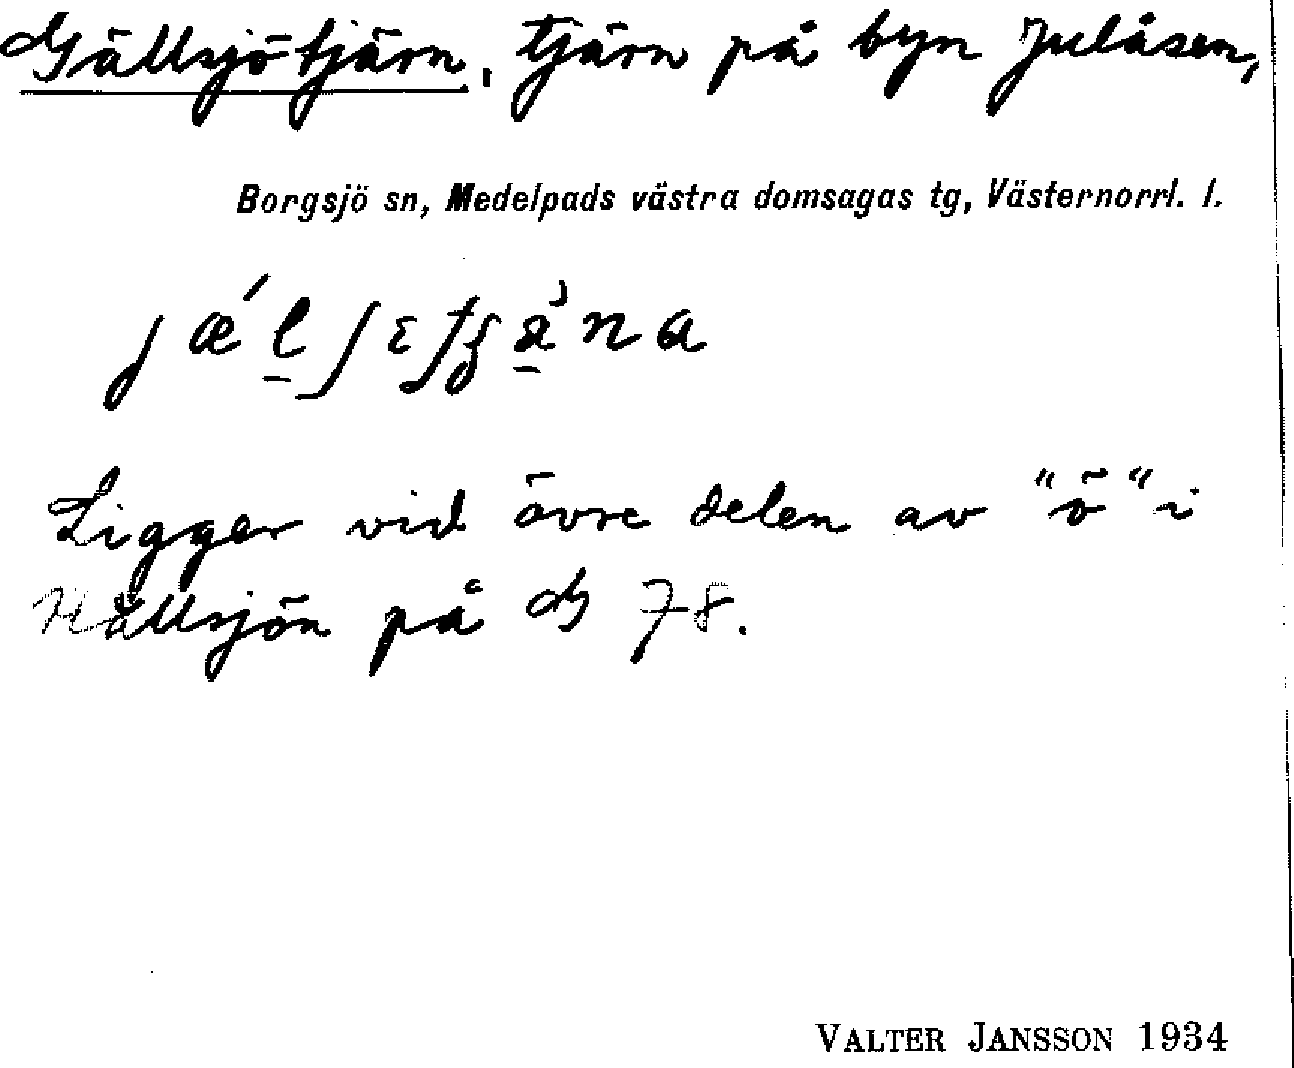 Gällsjötjärn, tjärn på byn Julåsen,
Borgsjö sn, Medelpads västra domsagas tg, Västernorrl. l.
Ligger vid övre delen av "ö" i
Hällsjön på G 78.
VALTER JANSSON 1934